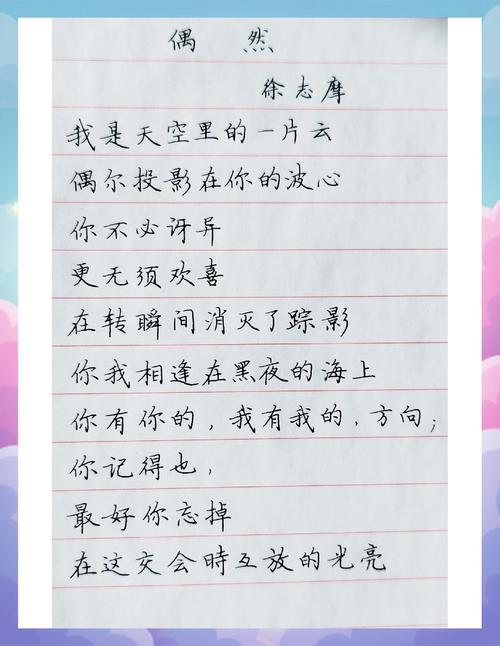 偶 然
徐志摩
我是天空里的一片云
偶尔投影在你的波心
你不必讶异
更无须欢喜
在转瞬间消灭了踪影
你我相逢在黑夜的海上
你有你的，我有我的，方向；
你记得也，
最好你忘掉
在这交会時互放的光亮